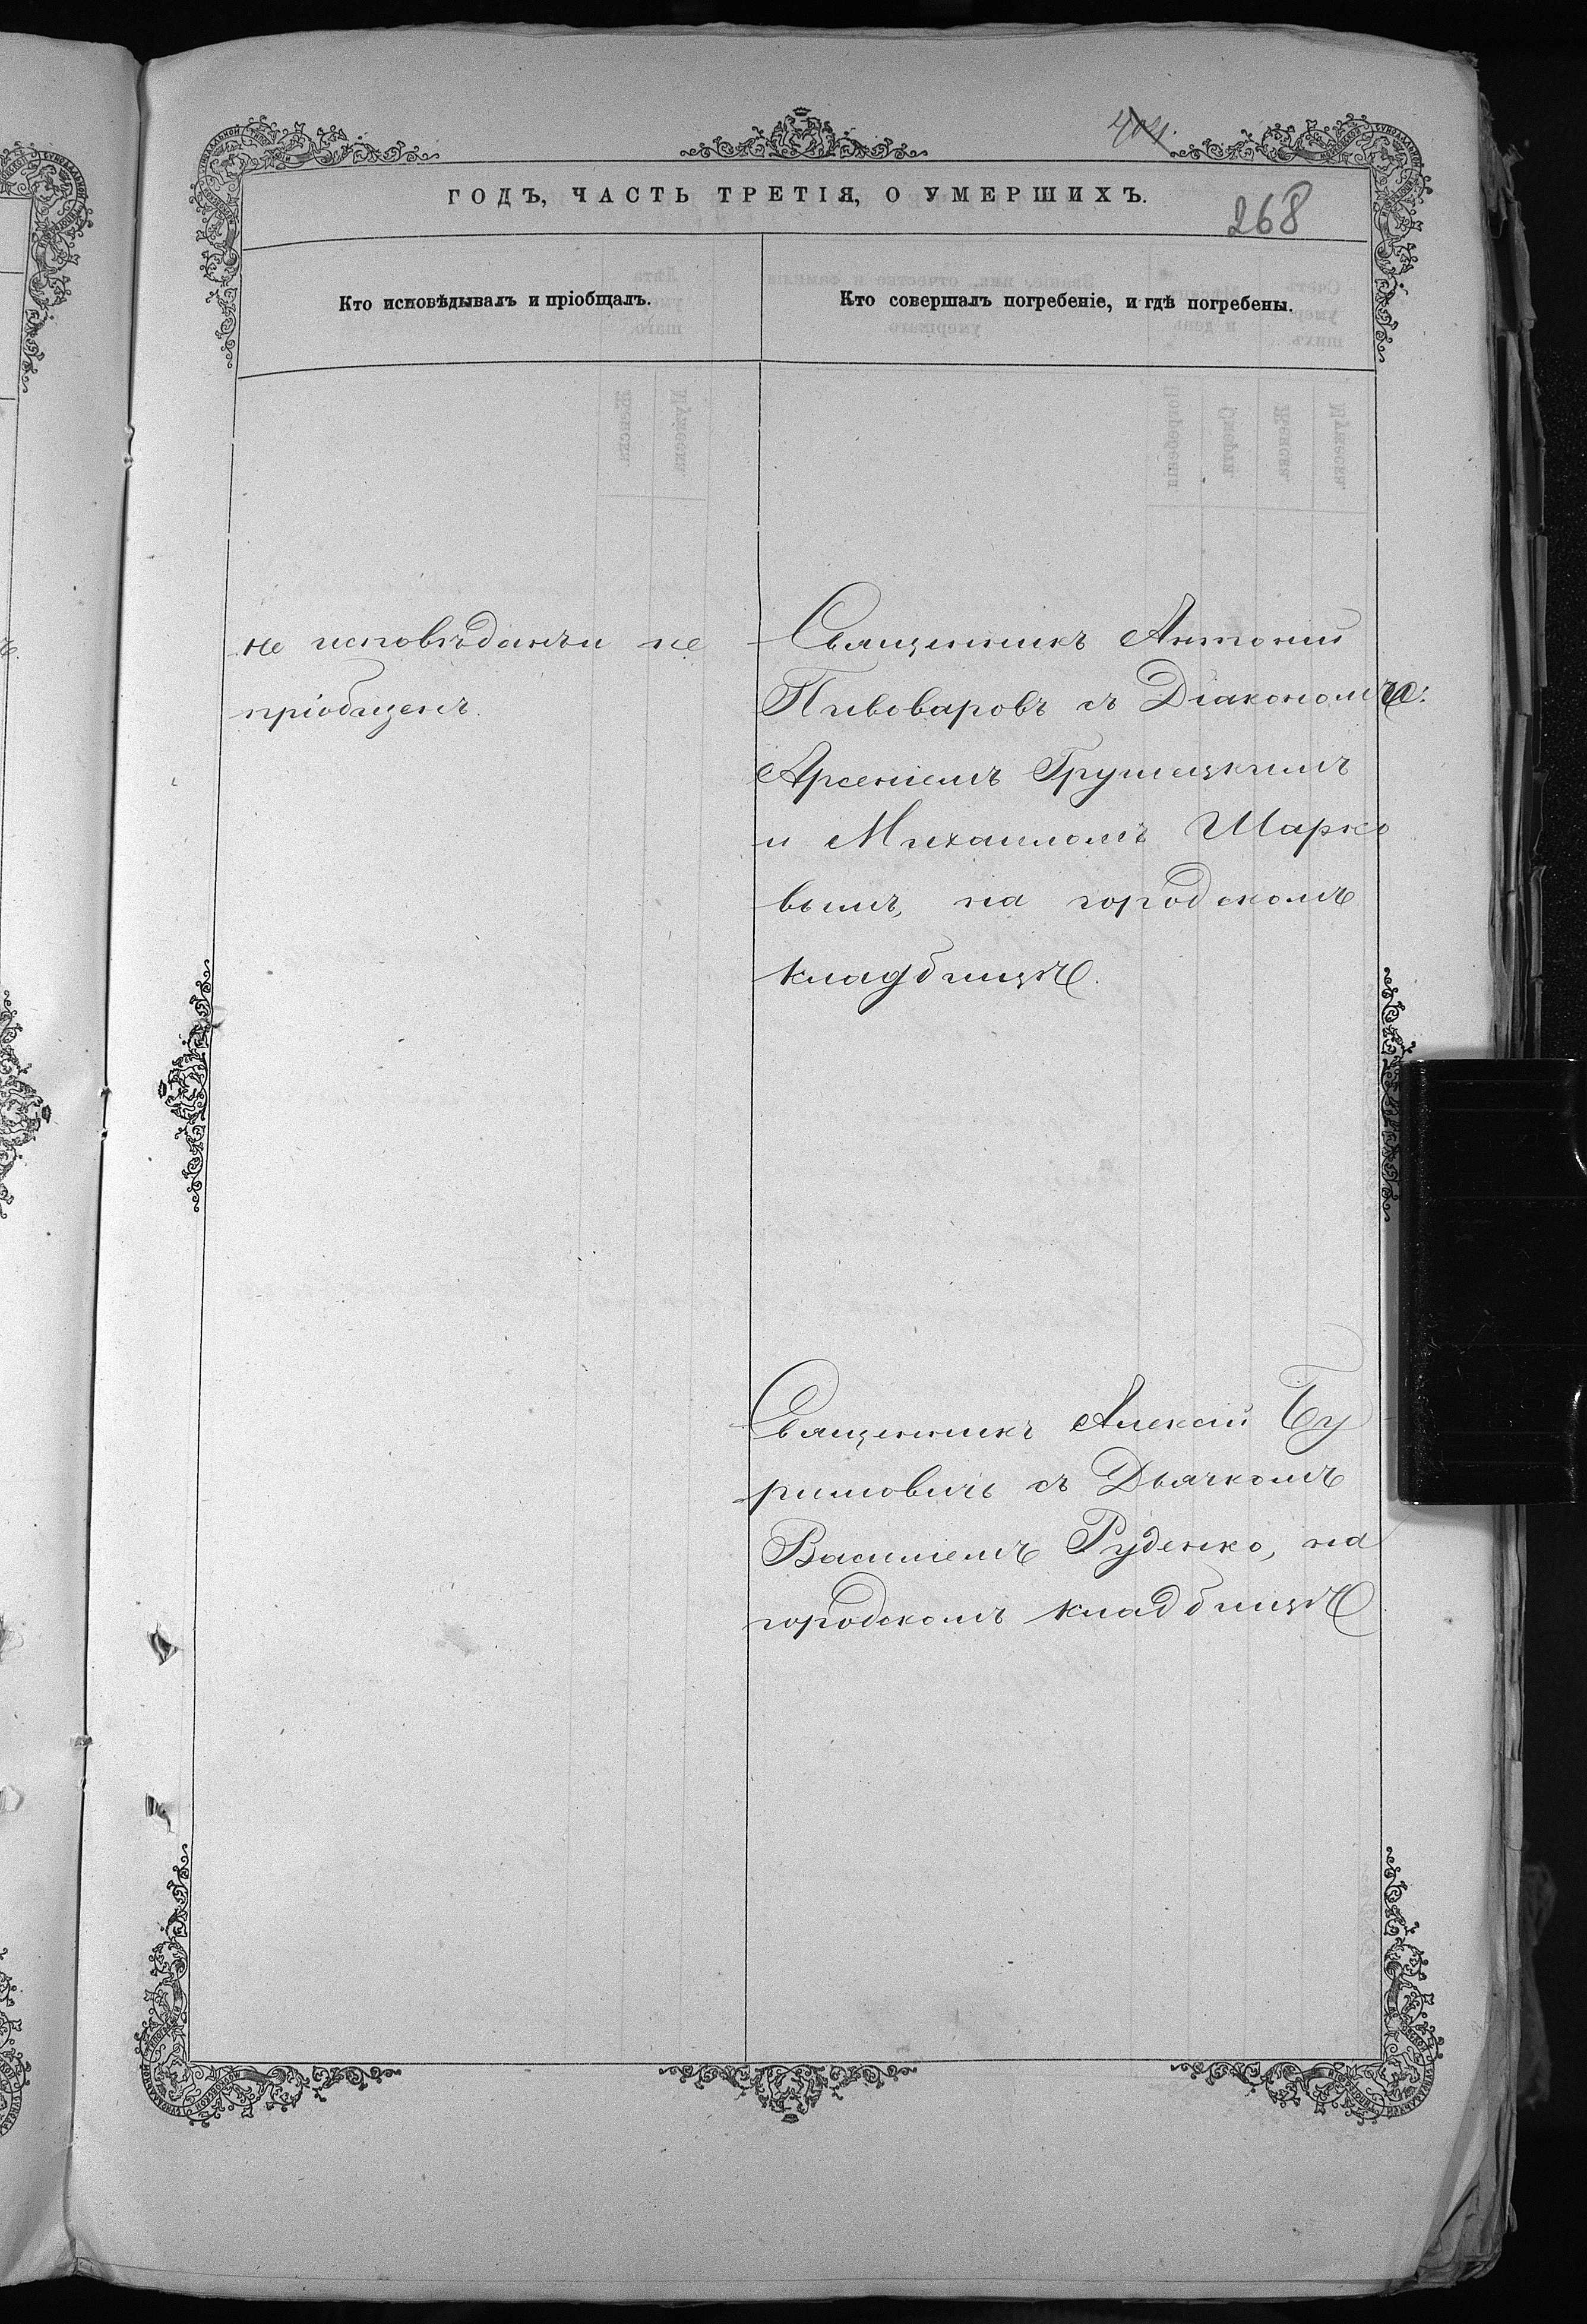 404.
ГОДЪ, ЧАСТЬ ТРЕТІЯ, О УМЕРШИХЪ.
268
Кто исповѣдывалъ и пріобщалъ.
Кто совершалъ погребеніе, и гдѣ погребены.
не исповѣданъ и не
пріобщенъ.
Священникъ Антоній
Пивоваровъ съ Діакономъ:
Арсеніемъ Грушецкимъ
и Михаиломъ Шарко
вымъ, на городскомъ
кладбищѣ.
Священникъ Алексій Бу
римовичь съ Дьячкомъ
Василіемъ Руденко, на
городскомъ кладбищѣ